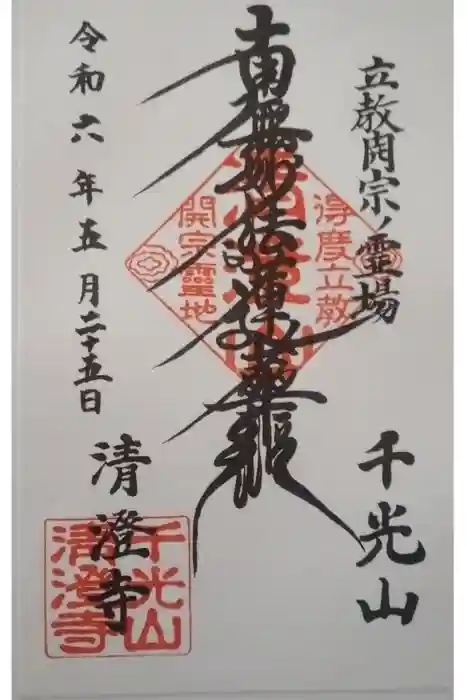 立教開宗ノ霊場
千光山
南無妙法蓮華経
令和六年五月二十五日
清澄寺
得度立教
開宗靈地
千光山
清澄寺